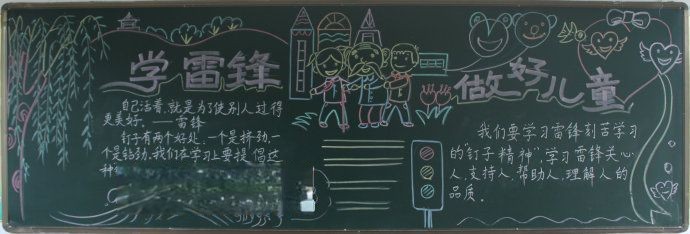 学雷锋
自己活着,就是为了使别人过得
更美好。——雷锋
钉子有两个好处,一个是挤劲,一
个是钻劲,我们在学习上要提倡这
种
做好儿童
我们要学习雷锋刻苦学习
的"钉子精神",学习雷锋关心
人,支持人,帮助人,理解人的
品质。